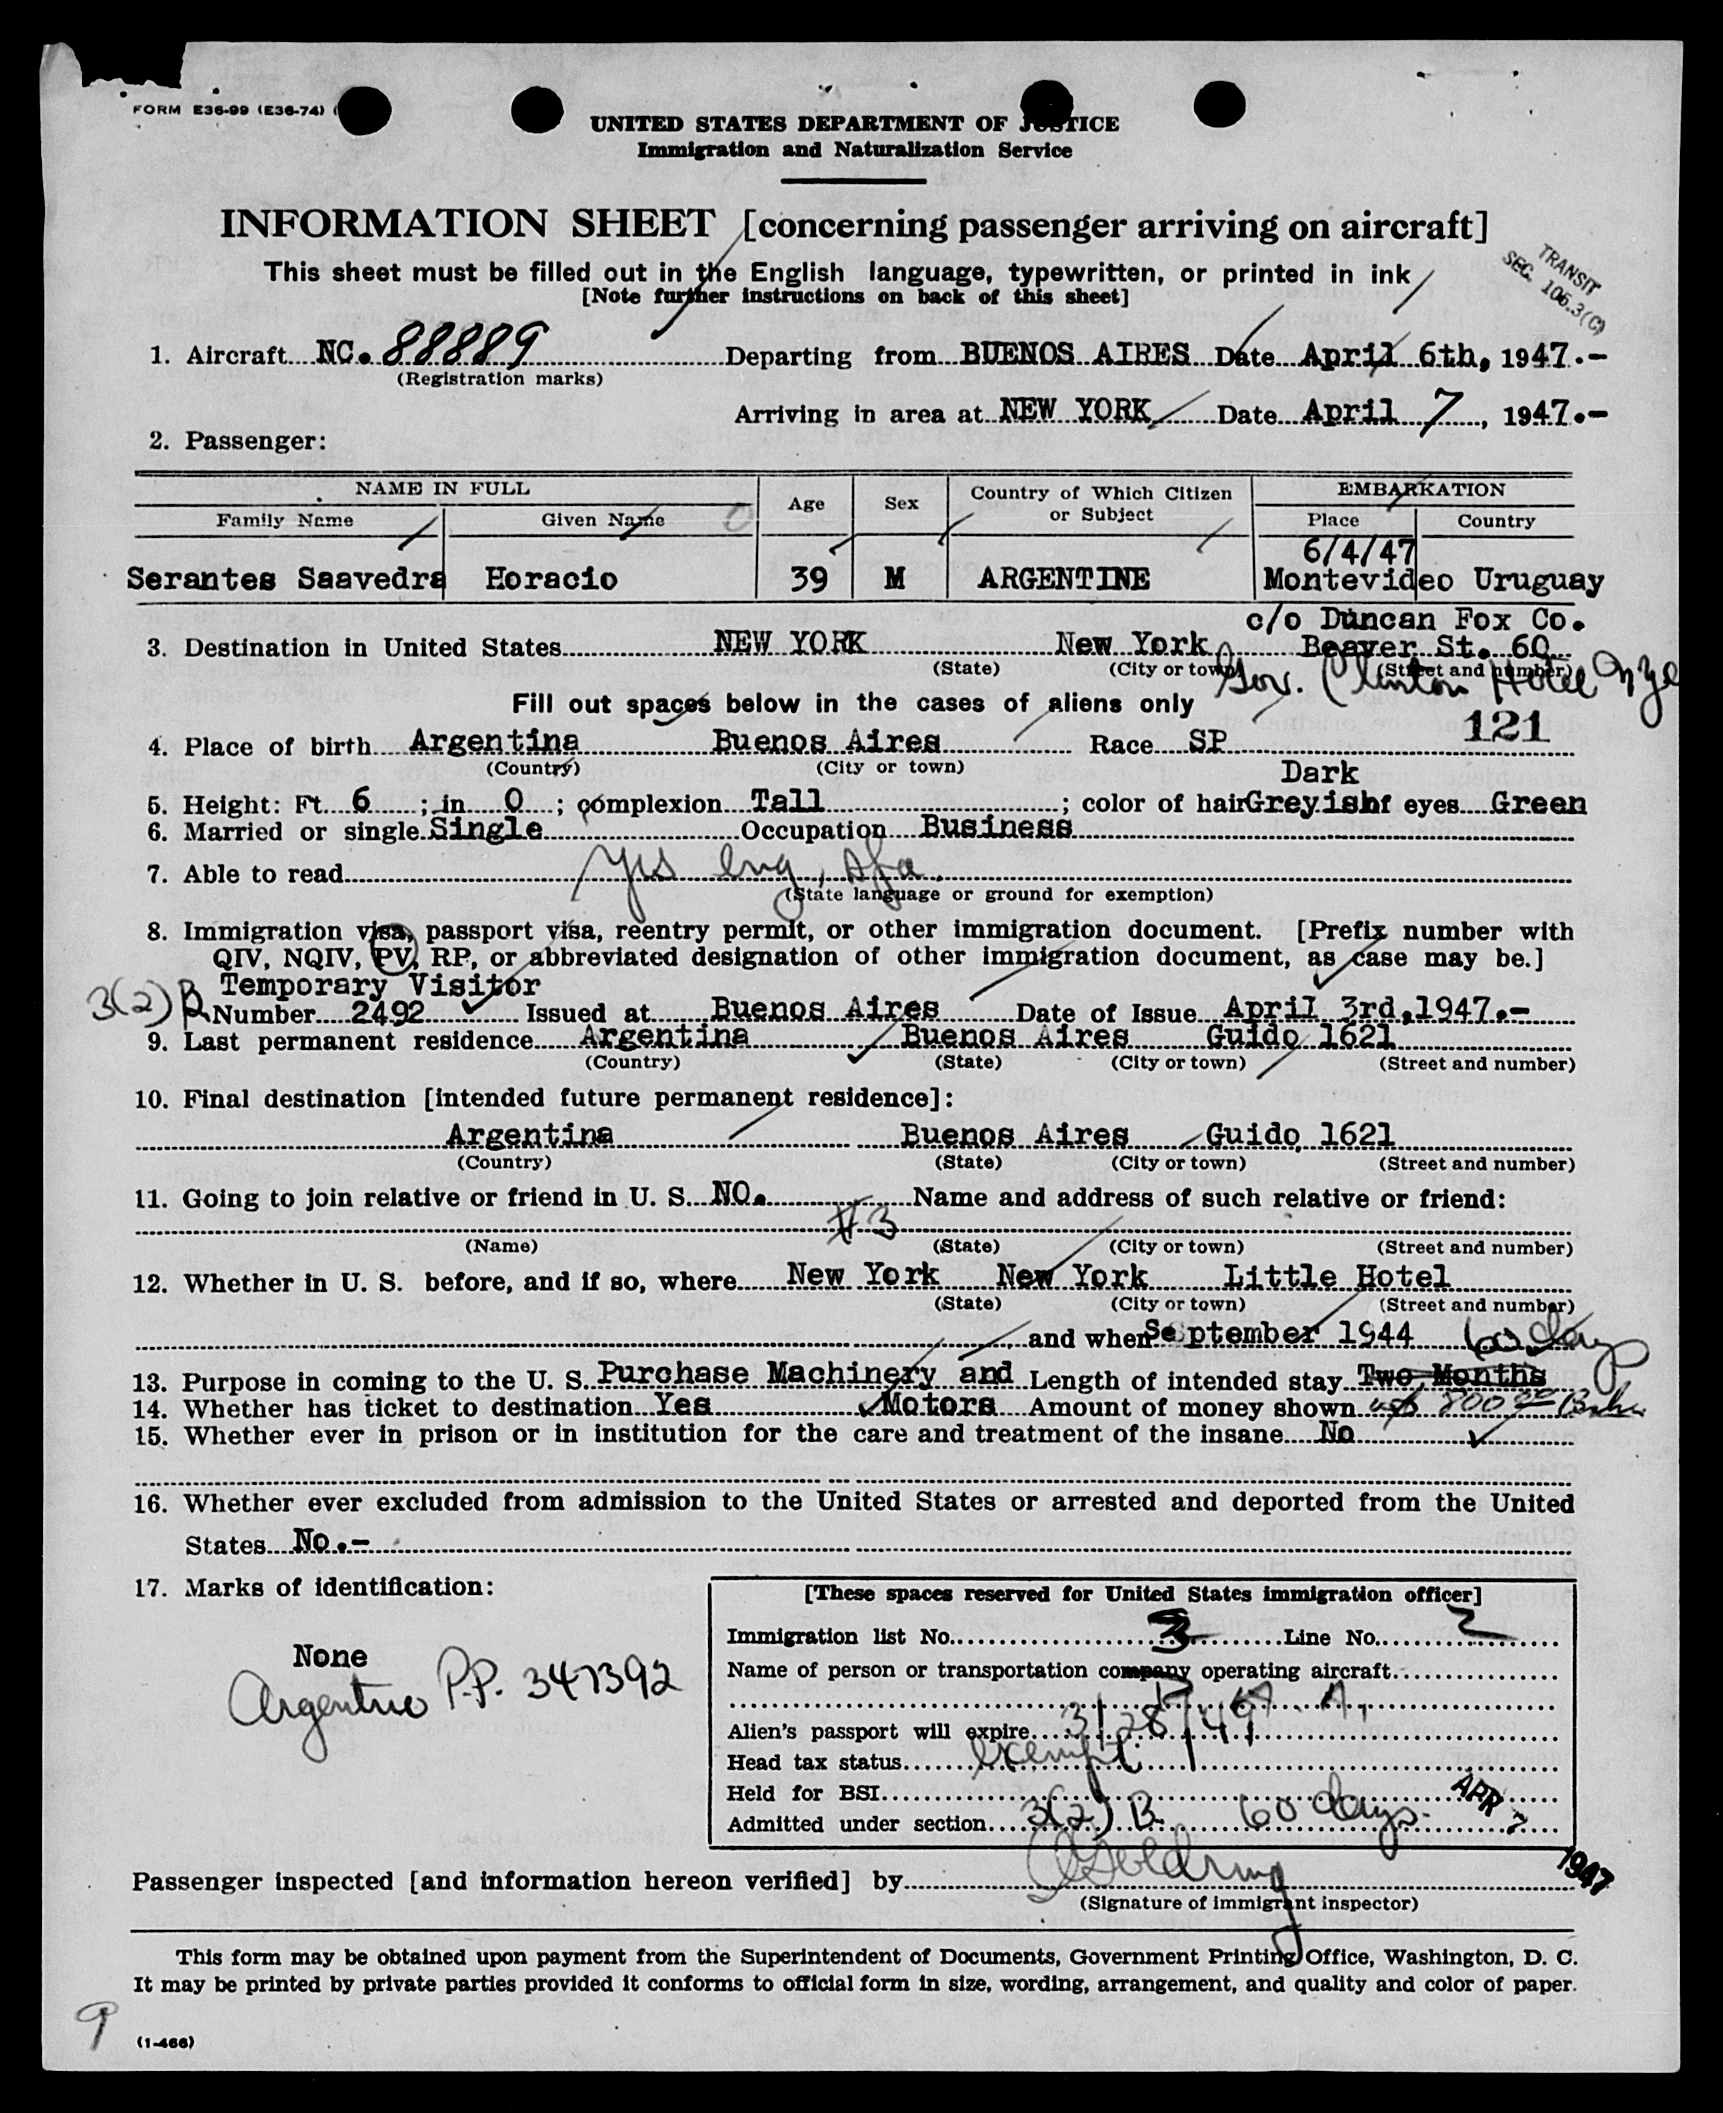 FORM E36-99 (E36-74) (
UNITED STATES DEPARTMENT OF JUSTICE
Immigration and Naturalization Service
INFORMATION SHEET [concerning passenger arriving on aircraft]
This sheet must be filled out in the English language, typewritten, or printed in ink
[Note further instructions on back of this sheet]
TRANSIT
SEC. 106.3(C)
1. Aircraft NC. 88889 Departing from BUENOS AIRES Date April 6th, 1947.-
(Registration marks)
Arriving in area at NEW YORK Date April 7, 1947.-
2. Passenger:
NAME IN FULL Age Sex Country of Which Citizen or Subject EMBARKATION
Family Name Given Name Place Country
6/4/47
Serantes Saavedra Horacio 39 M ARGENTINE Montevideo Uruguay
c/o Duncan Fox Co.
3. Destination in United States NEW YORK New York Beaver St. 60
(State) (City or town) (Street and number)
Gov. Clinton Hotel NYC
Fill out spaces below in the cases of aliens only
121
4. Place of birth Argentina Buenos Aires Race SP
(Country) (City or town)
Dark
5. Height: Ft. 6; in 0; complexion Tall; color of hair Greyish of eyes Green
6. Married or single Single Occupation Business
7. Able to read yes eng, Spa.
(State language or ground for exemption)
8. Immigration visa, passport visa, reentry permit, or other immigration document. [Prefix number with
QIV, NQIV, PV, RP, or abbreviated designation of other immigration document, as case may be.]
Temporary Visitor
3(2) B Number 2492 Issued at Buenos Aires Date of Issue April 3rd, 1947.-
9. Last permanent residence Argentina Buenos Aires Guido 1621
(Country) (State) (City or town) (Street and number)
10. Final destination [intended future permanent residence]:
Argentina Buenos Aires Guido 1621
(Country) (State) (City or town) (Street and number)
11. Going to join relative or friend in U. S. NO. Name and address of such relative or friend:
#3
(Name) (State) (City or town) (Street and number)
12. Whether in U. S. before, and if so, where New York New York Little Hotel
(State) (City or town) (Street and number)
and when September 1944 60 days
13. Purpose in coming to the U. S. Purchase Machinery and Length of intended stay Two Months
14. Whether has ticket to destination Yes Motors Amount of money shown 800.00
15. Whether ever in prison or in institution for the care and treatment of the insane No
16. Whether ever excluded from admission to the United States or arrested and deported from the United
States No.-
17. Marks of identification:
None
Argentine P.P. 347392
[These spaces reserved for United States immigration officer]
Immigration list No. 3 Line No. 2
Name of person or transportation company operating aircraft
P. A. A.
Alien's passport will expire 3/28/49
Head tax status exempt
Held for BSI
Admitted under section 3(2) B 60 days.
APR 7 1947
Passenger inspected [and information hereon verified] by Goldring
(Signature of immigrant inspector)
This form may be obtained upon payment from the Superintendent of Documents, Government Printing Office, Washington, D. C.
It may be printed by private parties provided it conforms to official form in size, wording, arrangement, and quality and color of paper.
9
(1-466)